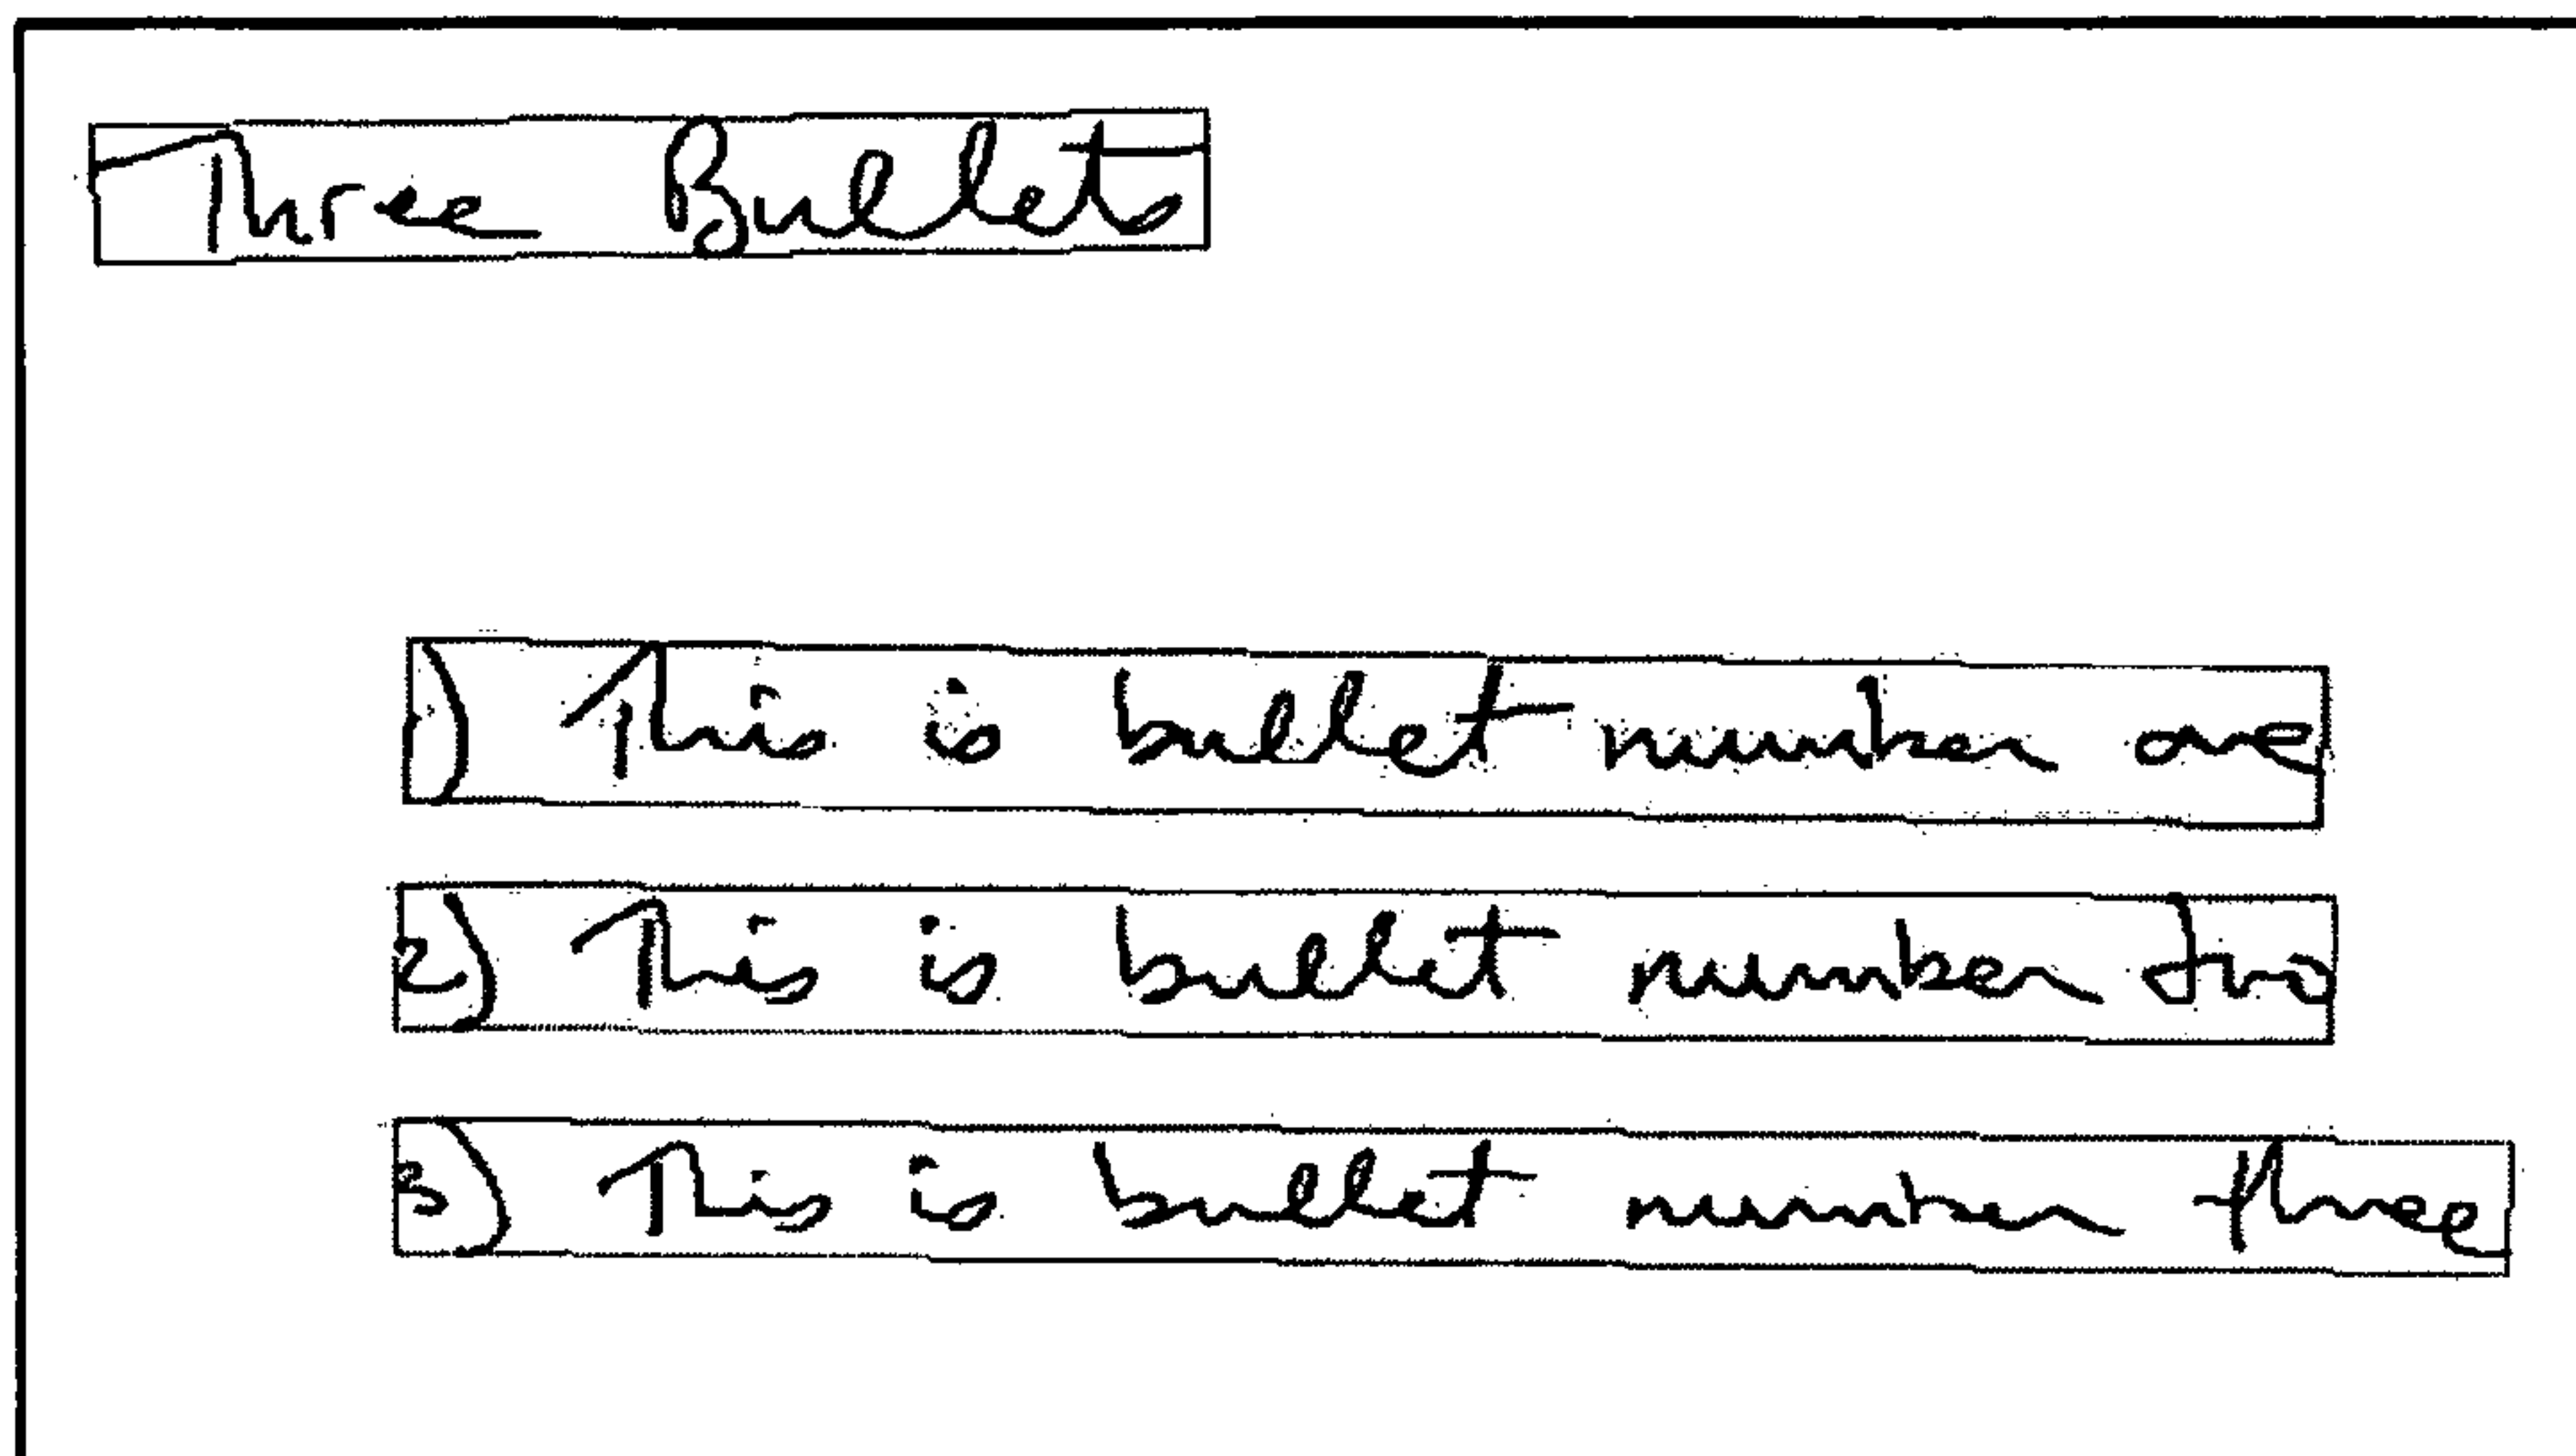 Three Bullets
1) This is bullet number one
2) This is bullet number two
3) This is bullet number three